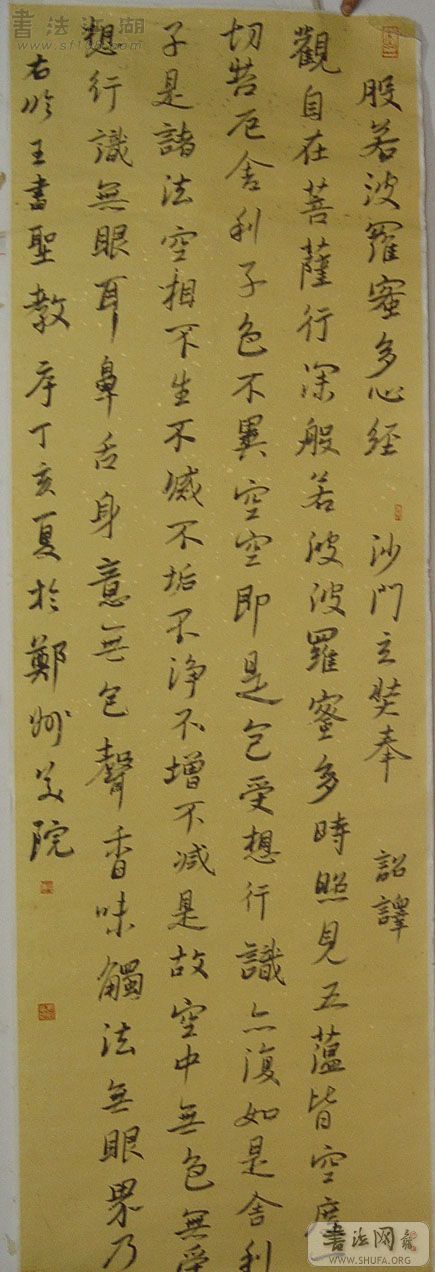 般若波羅蜜多心經 沙門玄奘奉 詔譯
觀自在菩薩行深般若波波羅蜜多時照見五蘊皆空度
切苦厄舍利子色不異空空即是色受想行識亦復如是舍利
子是諸法空相不生不滅不垢不淨不增不減是故空中無色無受
想行識無眼耳鼻舌身意無色聲香味觸法無眼界乃
右臨王書聖教序丁亥夏於鄭州美院
書法江湖
書法网
WWW.SHUFA.ORG